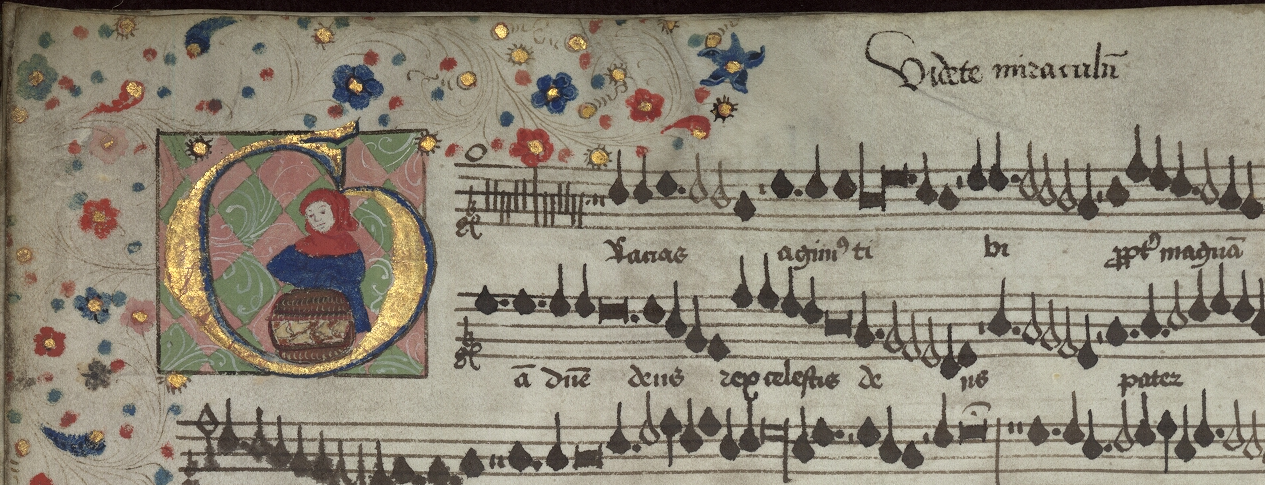 Videte miraculū
G
racias agim⁹ ti bi ꝓpt̉ magnā
ā dn̄e deus rex celestis de us pater